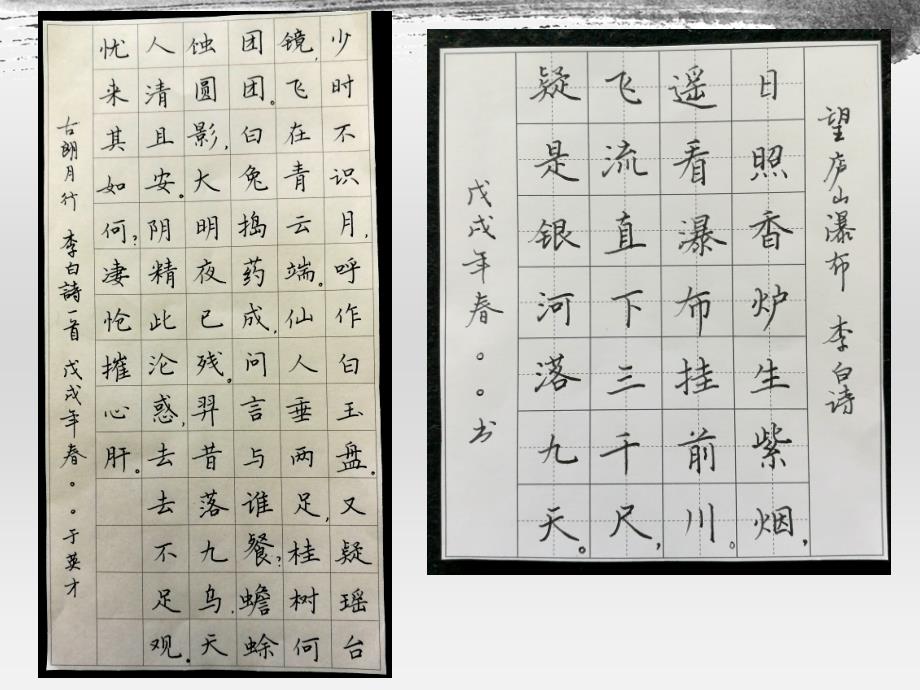 少时不识月,呼作白玉盘。又疑瑶台
镜,飞在青云端。仙人垂两足,桂树何
团团。白兔捣药成,问言与谁餐?蟾蜍
蚀圆影,大明夜已残。羿昔落九乌,天
人清且安。阴精此沦惑,去去不足观。
忧来其如何?凄怆摧心肝。
古朗月行 李白詩一首 戊戌年春。。于英才
望庐山瀑布 李白诗
日照香炉生紫烟,
遥看瀑布挂前川。
飞流直下三千尺,
疑是银河落九天。
戊戌年春。。书